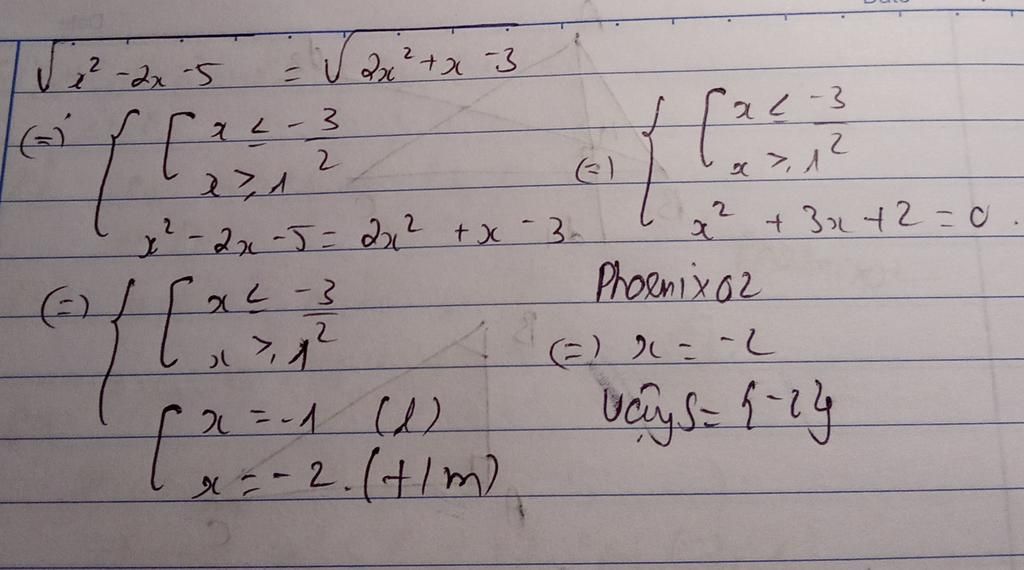 √x² - 2x - 5 = √2x² + x - 3
(=) { [ x ≤ -3/2
x ≥ 1
x² - 2x - 5 = 2x² + x - 3
(=) { [ x ≤ -3/2
x ≥ 1
x² + 3x + 2 = 0.
(=) { [ x ≤ -3/2
x ≥ 1
[ x = -1 (l)
x = -2. (t/m)
Phoenix02
(=) x = -2
Vậy S = {-2}